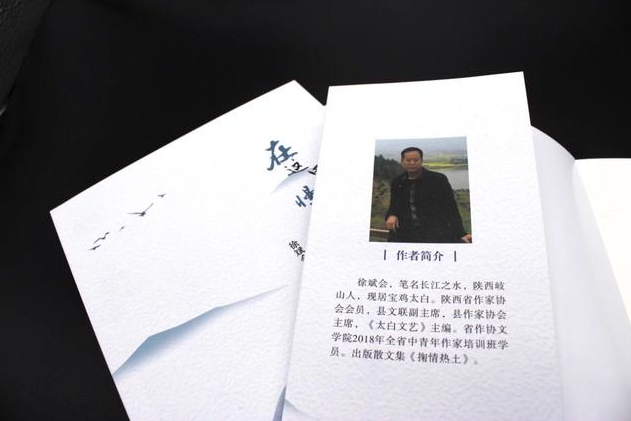 在
这
作者简介
徐斌会，笔名长江之水，陕西岐
山人，现居宝鸡太白。陕西省作家协
会会员，县文联副主席，县作家协会
主席，《太白文艺》主编。省作协文
学院2018年全省中青年作家培训班学
员。出版散文集《掬情热土》。